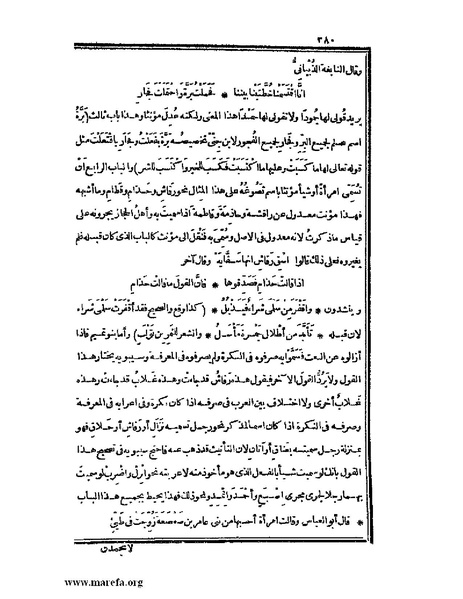 ٣٨٠
وقال النابغة الذُّبيانىُّ
انَّا اقتسمنا خُطَّتينا بيننا * فحملت برَّةَ واحتملتَ فجارِ
يريد قُولى لها جُودًا ولا تقولى لها حَمْدًا هذا المعنى ولكنه عُدِل مؤنثا وهذا باب ثالث (بَرَّةُ
اسم علم لجميع البِرِّ وفجارِ لجميع الفجور لابن جنّى تخصيصُه برَّة بفَعَلْتُ وفجارِ بافتعلت مثل
قوله تعالى لها ما كَسَبَتْ وعليها ما اكتَسَبَتْ فكسب للخير واكتَسَبَ للشر) والباب الرابع أنْ
تُسمّى امرأةً أو شيأً مؤنثا باسم تصوغُه على هذا المثال نحو رَقاشِ وحَذامِ وقَطامِ وما أشبهه
فهذا مؤنث معدول عن راقشة وحاذمةَ وقاطمة اذا سميتَ به وأهلُ الحجاز يجرونه على
قياس ما ذكرتُ لانه معدول فى الاصل وسُمّى به فنُقل الى مؤنث كالباب الذى كان قبله فلم
يغيروه فعلى ذلك قالوا اسقِ رَقاشِ انها سَقَّايَهْ وقال آخر
اذا قالتْ حَذامِ فصدِّقوها * فانَّ القولَ ما قالت حَذامِ
وينشدون * وأقفرَ مِن سَلمَى شَراءِ فيَذْبُلُ * (كذا وقع والصحيح فقد أقفَرَتْ سَلْمَى شَراءِ،
لان قبله * تأبَّدَ من أطلالِ جَمْرةَ مأسلُ * والشعر لنَّمِر بن تَوْلَبٍ) وأما بنو تميم فاذا
أزالوه عن النعت فسَمَّوا به صرفوه فى النكرة ولم يصرفوه فى المعرفة وسيبويه يختار هذا
القول ولا يَرُدُّ القولَ الآخر فيقول هذه رَقاشُ قد جاءت وهذه غَلابُ قد جاءت وهذه
غَلابٌ أخرى ولا اختلاف بين العرب فى صرفه اذا كان نكرة وفى اعرابه فى المعرفة
وصرفه فى النكرة اذا كان اسما لمذكر نحو رجل تسميه نَزالِ أو رَقاشِ أو حَلاقِ فهو
بمنزلة رجل سميته بعَناق أو أتان لان التأنيث قد ذهب عنه فاحتج سيبويه فى تصحيح هذا
القول بانك لو سميت شيأ بالفعل الذى هو مأخوذ منه لاعربته نحو انزِلْ واضرِبْ لو سميتَ
بهما رجلا جرى مجرى إصْبَعٍ وأحْمَدَ واثمِدٍ ونحو ذلك فهذا يحيط بجميع هذا الباب
* قال أبو العباس وقالت امرأة أحسِبها من بنى عامر بن صَعصعة زُوّجتْ فى طَيّئٍ
لا تحمدن
www.marefa.org